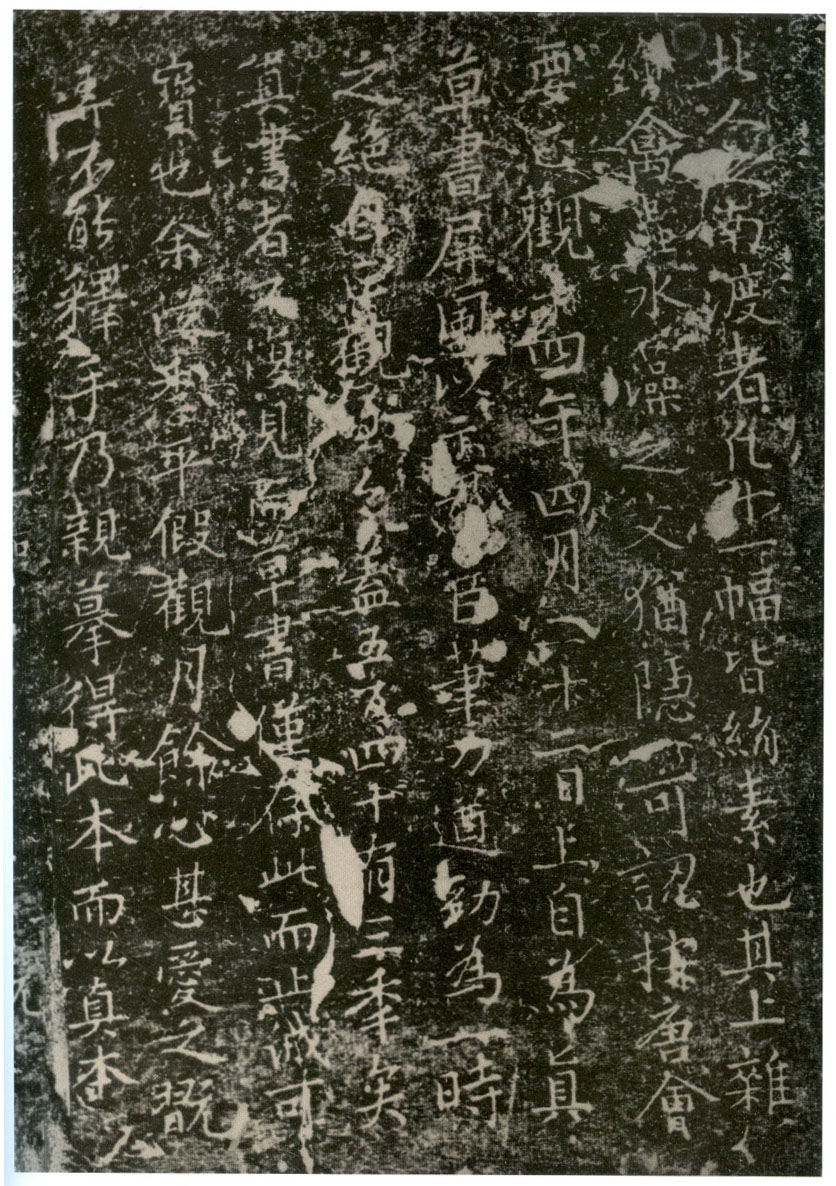 北人之南度者凡十一幅皆絹素也其上雜
繪禽水藻之文猶隱可認按唐會
要正觀十四年四月二十二日上自為真
草書屏風以示群臣筆力遒勁為一時
之絕自正觀至今盖五百四十有三年矣
真書者不復見而草書僅存此而止誠可
寶也余平假觀月餘心甚愛之翫
弄不能釋手乃親摹得此本而以真本